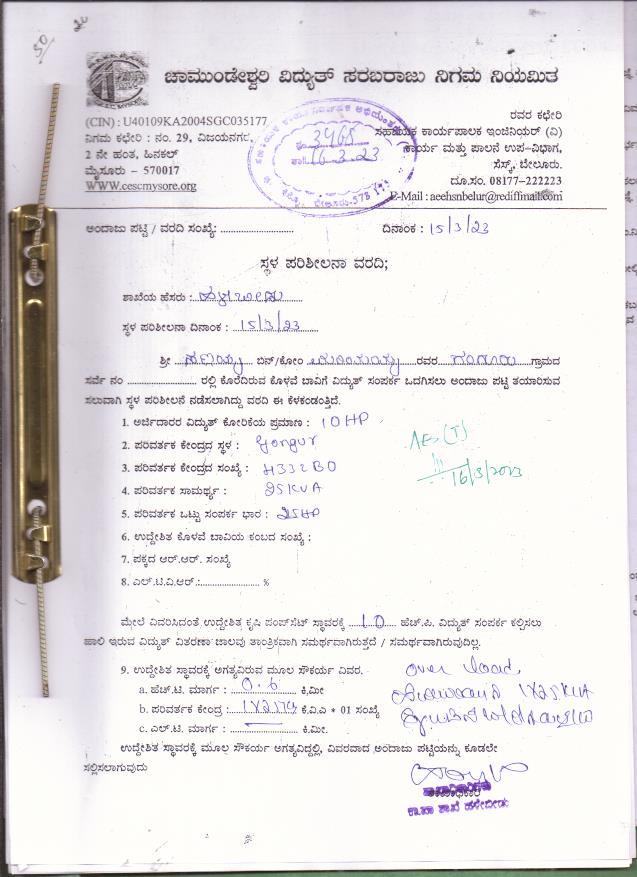 50
ಚಾಮುಂಡೇಶ್ವರಿ ವಿದ್ಯುತ್ ಸರಬರಾಜು ನಿಗಮ ನಿಯಮಿತ
(CIN) : U40109KA2004SGC035177
ನಿಗಮ ಕಛೇರಿ : ನಂ. 29, ವಿಜಯನಗರ,
2 ನೇ ಹಂತ, ಹಿನಕಲ್
ಮೈಸೂರು – 570017
WWW.cescmysore.org
3468
16.3.23
ರವರ ಕಛೇರಿ
ಸಹಾಯಕ ಕಾರ್ಯಪಾಲಕ ಇಂಜಿನಿಯರ್ (ವಿ)
ಕಾರ್ಯ ಮತ್ತು ಪಾಲನೆ ಉಪ-ವಿಭಾಗ,
ಸೆಸ್ಕ್, ಬೇಲೂರು.
ದೂ.ಸಂ. 08177-222223
E-Mail : aeehsnbelur@rediffmail.com
ಅಂದಾಜು ಪಟ್ಟಿ / ವರದಿ ಸಂಖ್ಯೆ: ........................ ದಿನಾಂಕ : 15/3/23
ಸ್ಥಳ ಪರಿಶೀಲನಾ ವರದಿ;
ಶಾಖೆಯ ಹೆಸರು : ಹಳೇಬೀಡು
ಸ್ಥಳ ಪರಿಶೀಲನಾ ದಿನಾಂಕ : 15/3/23
ಶ್ರೀ ಬಿನ್/ಕೋಂ ರವರ ಗ್ರಾಮದ
ಸರ್ವೆ ನಂ ........................ ರಲ್ಲಿ ಕೊರೆದಿರುವ ಕೊಳವೆ ಬಾವಿಗೆ ವಿದ್ಯುತ್ ಸಂಪರ್ಕ ಒದಗಿಸಲು ಅಂದಾಜು ಪಟ್ಟಿ ತಯಾರಿಸುವ
ಸಲುವಾಗಿ ಸ್ಥಳ ಪರಿಶೀಲನೆ ನಡೆಸಲಾಗಿದ್ದು ವರದಿ ಈ ಕೆಳಕಂಡಂತಿದೆ.
1. ಅರ್ಜಿದಾರರ ವಿದ್ಯುತ್ ಕೋರಿಕೆಯ ಪ್ರಮಾಣ : 10HP
2. ಪರಿವರ್ತಕ ಕೇಂದ್ರದ ಸ್ಥಳ : Gongur
AE(T)
16/3/2023
3. ಪರಿವರ್ತಕ ಕೇಂದ್ರದ ಸಂಖ್ಯೆ :
4. ಪರಿವರ್ತಕ ಸಾಮರ್ಥ್ಯ : 25KVA
5. ಪರಿವರ್ತಕ ಒಟ್ಟು ಸಂಪರ್ಕ ಭಾರ : 25HP
6. ಉದ್ದೇಶಿತ ಕೊಳವೆ ಬಾವಿಯ ಕಂಬದ ಸಂಖ್ಯೆ :
7. ಪಕ್ಕದ ಆರ್.ಆರ್. ಸಂಖ್ಯೆ
8. ಎಲ್.ಟಿ.ವಿ.ಆರ್.:........................ %
ಮೇಲೆ ವಿವರಿಸಿದಂತೆ ಉದ್ದೇಶಿತ ಕೃಷಿ ಪಂಪ್‌ಸೆಟ್ ಸ್ಥಾವರಕ್ಕೆ 10 ಹೆಚ್.ಪಿ. ವಿದ್ಯುತ್ ಸಂಪರ್ಕ ಕಲ್ಪಿಸಲು
ಹಾಲಿ ಇರುವ ವಿದ್ಯುತ್ ವಿತರಣಾ ಜಾಲವು ತಾಂತ್ರಿಕವಾಗಿ ಸಮರ್ಥವಾಗಿರುತ್ತದೆ / ಸಮರ್ಥವಾಗಿರುವುದಿಲ್ಲ.
9. ಉದ್ದೇಶಿತ ಸ್ಥಾವರಕ್ಕೆ ಅಗತ್ಯವಿರುವ ಮೂಲ ಸೌಕರ್ಯ ವಿವರ. over load,
a. ಹೆಚ್.ಟಿ. ಮಾರ್ಗ : 0.6 ಕಿ,ಮೀ 1X25KVA
b. ಪರಿವರ್ತಕ ಕೇಂದ್ರ : ಕೆ.ವಿ.ಎ * 01 ಸಂಖ್ಯೆ
c. ಎಲ್.ಟಿ. ಮಾರ್ಗ : ಕಿ.ಮೀ.
ಉದ್ದೇಶಿತ ಸ್ಥಾವರಕ್ಕೆ ಮೂಲ ಸೌಕರ್ಯ ಅಗತ್ಯವಿದ್ದಲ್ಲಿ, ವಿವರವಾದ ಅಂದಾಜು ಪಟ್ಟಿಯನ್ನು ಕೂಡಲೇ
ಸಲ್ಲಿಸಲಾಗುವುದು
ಶಾಖಾಧಿಕಾರಿ
ಕಾ.ಪಾ ಶಾಖೆ ಹಳೇಬೀಡು